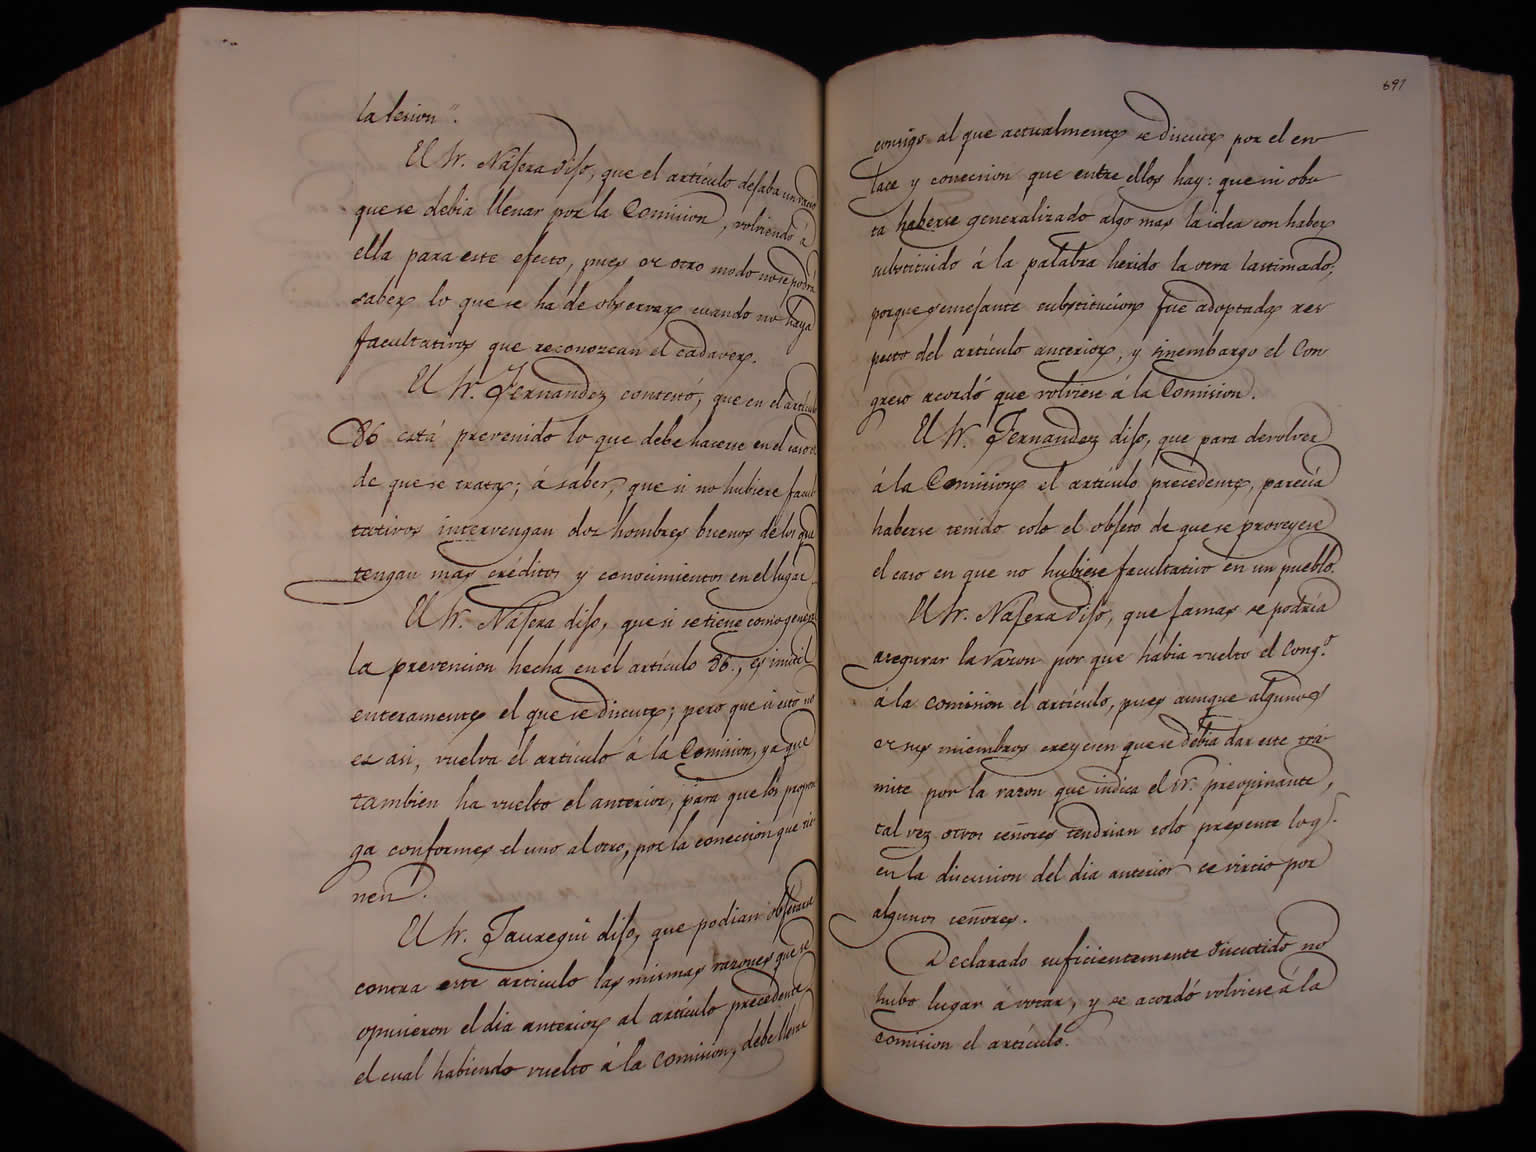 la lesion".
El Sr. Najera dijo, que el artículo dejaba un vacio
que se debia llenar por la Comision, volviendo á
ella para este efecto, pues de otro modo no se podrá
saber lo que se ha de observar cuando no haya
facultativos que reconozcan el cadaver.
El Sr. Fernandez contestó, que en el artículo
86 está prevenido lo que debe hacerse en el caso
de que se trata; á saber, que si no hubiere facul
tativos intervengan dos hombres buenos de los que
tengan mas créditos y conocimientos en el lugar.
El Sr. Najera dijo, que si se tiene como general
la prevencion hecha en el artículo 86., es inutil
enteramente el que se discute; pero que si esto no
es asi, vuelva el artículo á la Comision, ya que
tambien ha vuelto el anterior, para que los propon
ga conformes el uno al otro, por la coneccion que tie
nen.
El Sr. Jauregui dijo, que podian objetarse
contra este articulo las mismas razones que se
opusieron el dia anterior al artículo precedente
el cual habiendo vuelto á la comision, debe llevar
897
consigo al que actualmente se discute por el en
lace y conecsion que entre ellos hay: que ni obs
ta haberse generalizado algo mas la idea con haber
substituido á la palabra herido la otra lastimado;
porque semejante substitucion fue adoptada res
pecto del artículo anterior, y sinembargo el Con
greso acordó que volviese á la Comision.
El Sr. Fernandez dijo, que para devolver
á la Comision el artículo precedente, parecia
haberse tenido solo el objeto de que se proveyese
el caso en que no hubiese facultativo en un pueblo.
El Sr. Najera dijo, que jamas se podria
asegurar la razon por que habia vuelto el Congo.
á la comision el artículo, pues aunque algunos
de sus miembros creyesen que se debia dar este trá
mite por la razon que indica el Sr. preopinante,
tal vez otros señores tendrian solo presente lo q.
en la discusion del dia anterior se virtió por
algunos señores.
Declarado suficientemente discutido no
hubo lugar á votar, y se acordó volviese á la
comision el artículo.